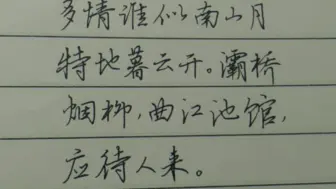 多情谁似南山月
特地暮云开。灞桥
烟柳,曲江池馆,
应待人来。